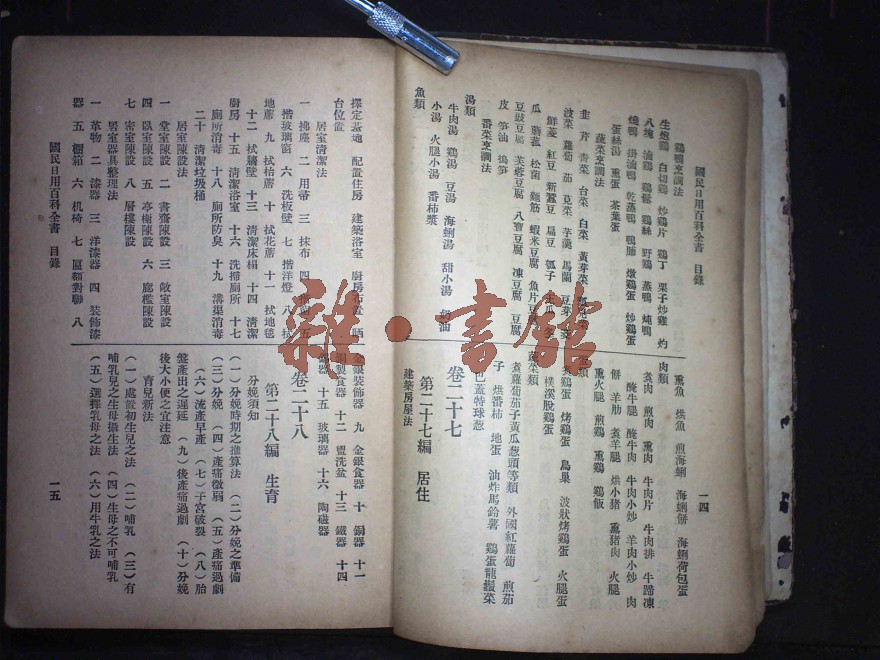 國民日用百科全書 目錄
一四
鷄鴨烹調法
生炮鷄 白切鷄 炒鷄片 鷄丁 栗子炒雞 灼
八塊 油鷄 鷄鬆 鷄絲 野鷄 蒸鴨 燉鴨
燒鴨 掛油鴨 乾蒸鴨 鴨脯 燉鷄蛋 炒鷄蛋
蛋絲湯 熏蛋 茶葉蛋
蔬菜烹調法
韭 芹 青菜 台菜 白菜 黃芽菜
菠菜 蘿蔔 茄 莧菜 芋羹 馬蘭 豆芽
鮮菱 紅豆 新蠶豆 扁豆 瓠子
瓜 蘑菰 松菌 麵筋 蝦米豆腐 魚片豆腐
豆豉豆腐 芙蓉豆腐 八寶豆腐 凍豆腐 豆腐
皮 笋油 搗笋
番菜烹調法
湯類
牛肉湯 鷄湯 豆湯 海蜊湯 甜小湯 奶油
小湯 火腿小湯 番柿漿
魚類
熏魚 烘魚 煎海蜊 海蜊餅 海蜊荷包蛋
肉類
炙肉 煎肉 熏肉 牛肉片 牛肉排 牛蹄凍
醃牛腿 醃牛肉 牛肉小炒 羊肉小炒 肉
餅 羊肋 炙羊腿 烘小豬 熏豬肉 火腿
熏火腿 煎鷄 熏鷄 鷄飯
鷄蛋 烤鷄蛋 鳥巢 波狀烤鷄蛋 火腿蛋
樸溪脫鷄蛋
蔬菜類
煮蘿蔔茄子黃瓜葱頭等類 外國紅蘿蔔 煎茄
子 烘番柿 地蛋 油炸馬鈴薯 鷄蛋龍鬚菜
巴蓋特球葱
卷二十七
第二十七編 居住
建築房屋法
擇定基地 配置住房 建築浴室 廚房布置 晒
台位置
居室清潔法
一 拂塵 二 用帚 三 抹布 四
揩玻璃窗 六 洗板壁 七 揩洋燈 八 拭
地蓆 九 拭枯蓆 十 拭花蓆 十一 拭地毯
十二 拭牆壁 十三 清潔床榻 十四 清潔
廚房 十五 清潔浴室 十六 洗滌廁所 十七
廁所消毒 十八 廁所防臭 十九 溝渠消毒
二十 清潔垃圾桶
居室陳設法
一 堂室陳設 二 書齋陳設 三 敞室陳設
四 臥室陳設 五 亭榭陳設 六 廊檻陳設
七 密室陳設 八 層樓陳設
居室器具整理法
一 革物 二 漆器 三 洋漆器 四 裝飾漆
器 五 櫥箱 六 机椅 七 匾額對聯 八
金銀裝飾器 九 金銀食器 十 銅器 十一
銅製食器 十二 盥洗盆 十三 鐵器 十四
錫器 十五 玻璃器 十六 陶磁器
卷二十八
第二十八編 生育
分娩須知
(一)分娩時期之推算法 (二)分娩之準備
(三)分娩 (四)產痛微弱 (五)產痛過劇
(六)流產早產 (七)子宮破裂 (八)胎
盤產出之遲延 (九)後產痛過劇 (十)分娩
後大小便之宜注意
育兒新法
(一)處置初生兒之法 (二)哺乳 (三)有
哺乳兒之生母攝生法 (四)生母之不可哺乳
(五)選擇乳母之法 (六)用牛乳之法
國民日用百科全書 目錄
一五
雜·書館